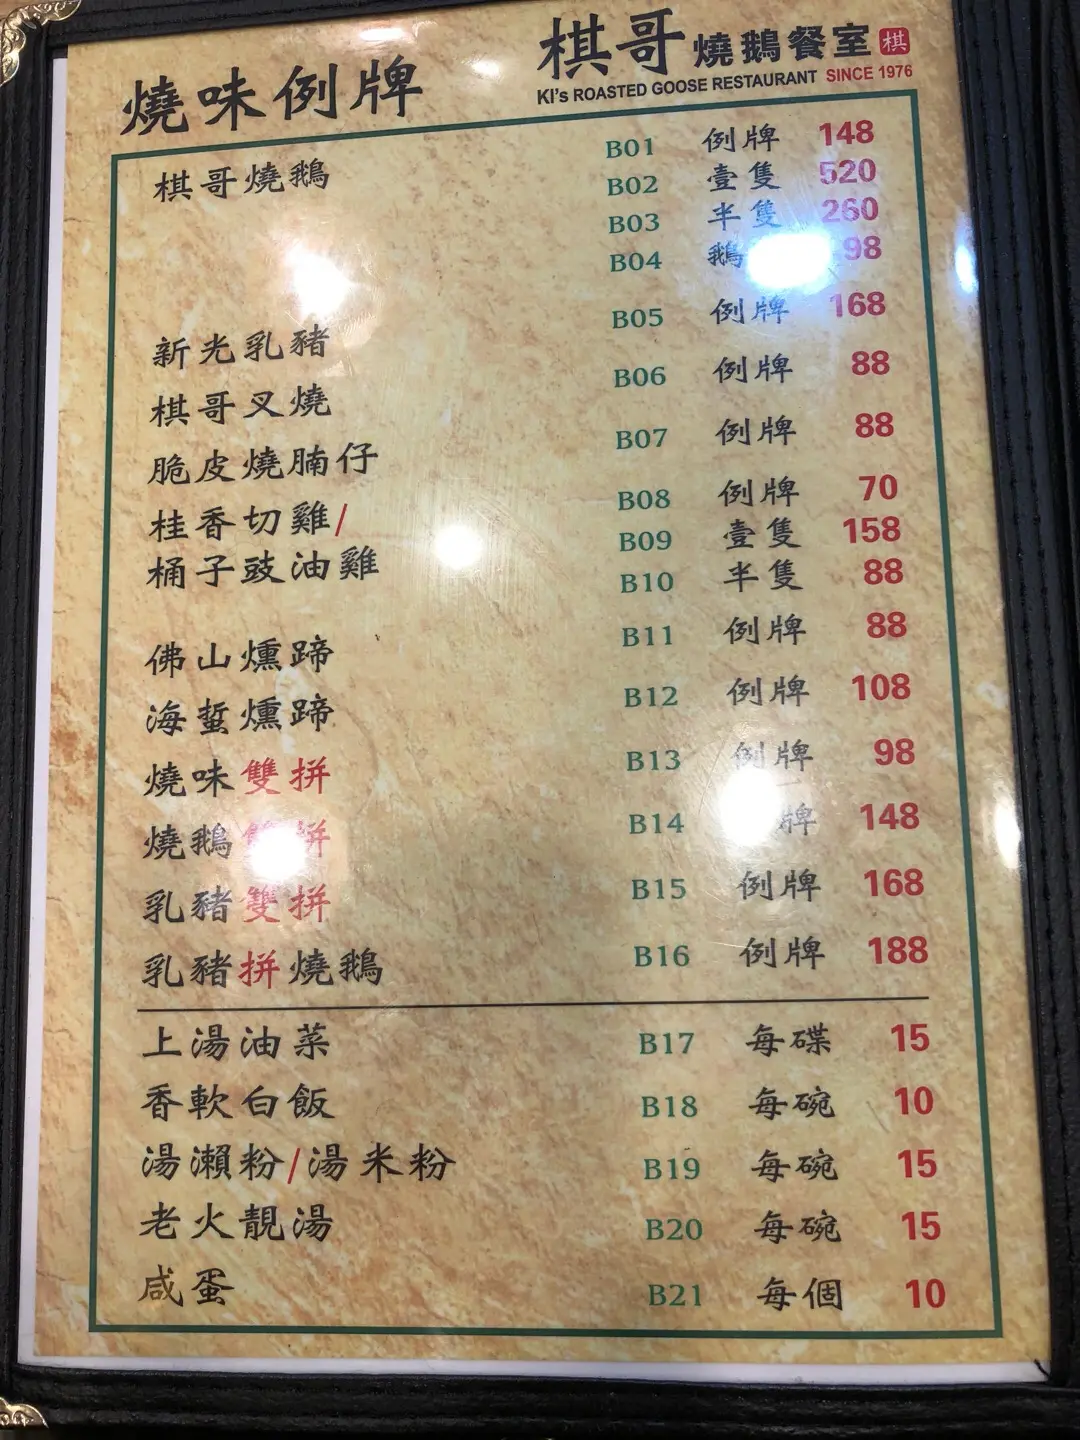 燒味例牌
棋哥 燒鵝餐室 棋
KI's ROASTED GOOSE RESTAURANT SINCE 1976
棋哥燒鵝 B01 例牌 148
B02 壹隻 520
B03 半隻 260
B04 鵝 98
新光乳豬 B05 例牌 168
棋哥叉燒 B06 例牌 88
脆皮燒腩仔 B07 例牌 88
桂香切雞/ B08 例牌 70
桶子豉油雞 B09 壹隻 158
B10 半隻 88
佛山燻蹄 B11 例牌 88
海蜇燻蹄 B12 例牌 108
燒味雙拼 B13 例牌 98
燒鵝雙拼 B14 牌 148
乳豬雙拼 B15 例牌 168
乳豬拼燒鵝 B16 例牌 188
上湯油菜 B17 每碟 15
香軟白飯 B18 每碗 10
湯瀨粉/湯米粉 B19 每碗 15
老火靚湯 B20 每碗 15
咸蛋 B21 每個 10